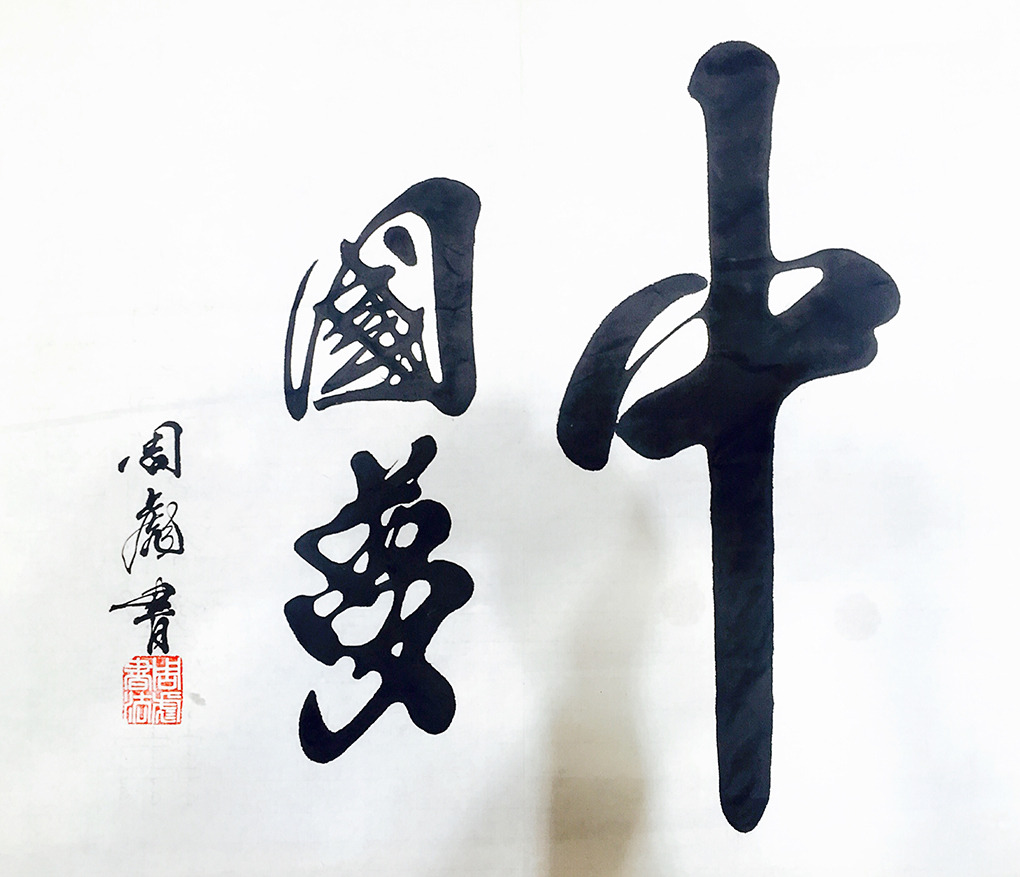 中
國夢
周彪書